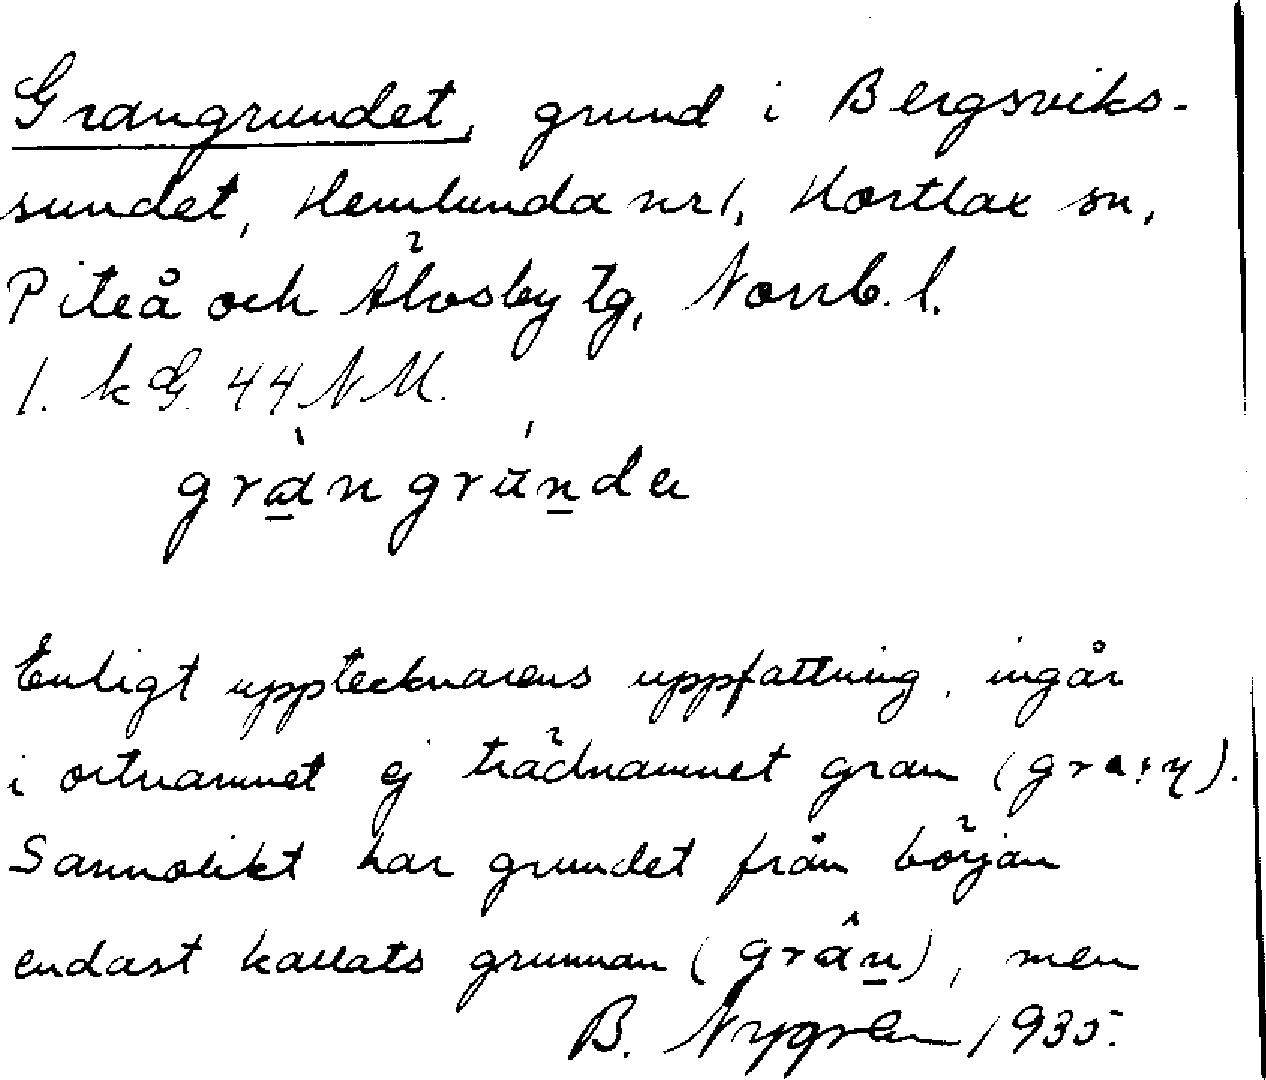 Grangrundet, grund i Bergsviks-
sundet, Hemlunda nr 1, Hortlax sn,
Piteå och Älvsby tg, Norrb. l.
1. k G. 44 NM.
gràn grúnda
Enligt upptecknarens uppfattning, ingår
i ortnamnet ej trädnamnet gran (gra:n).
Sannolikt har grundet från början
endast kallats grunnan (grân), men
B. Nygren 1935.